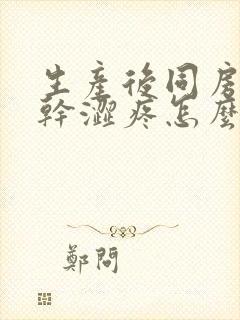 生産後同房
幹澀疼怎麼
鄭問